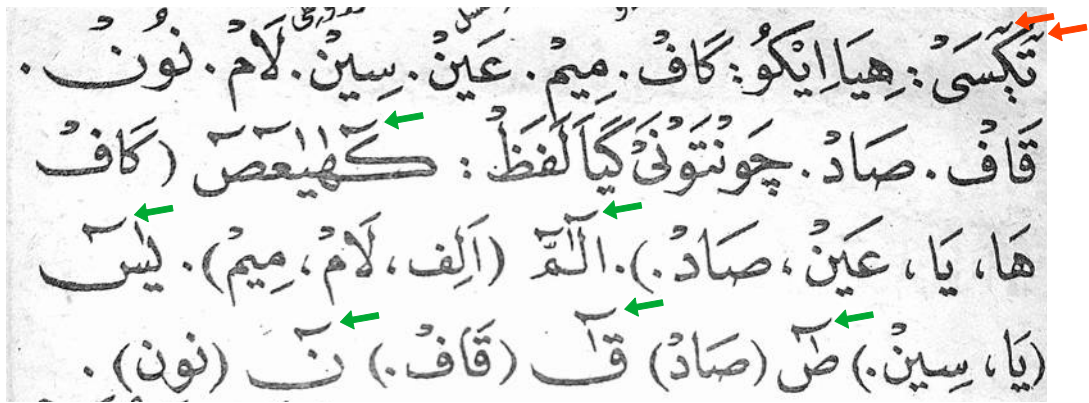 تٓڮٓسَىْ : هِيَا اِيْكُو : كَافْ . مِيمْ . عَيْنْ . سِيْنْ . لَامْ . نُونْ .
قَافْ . صَادْ . چَوْنْتَوْنَىْ كَيَا لَفَظْ : كٓهٰيٰعٓصٓ (كَافْ
هَا، يَا، عَيْنْ، صَادْ.). الٓمّٓ (اَلِف، لَامْ، مِيمْ). يٰسٓ
(يَا، سِيْنْ.) صٓ (صَادْ) قٓ (قَافْ.) نٓ (نون) .